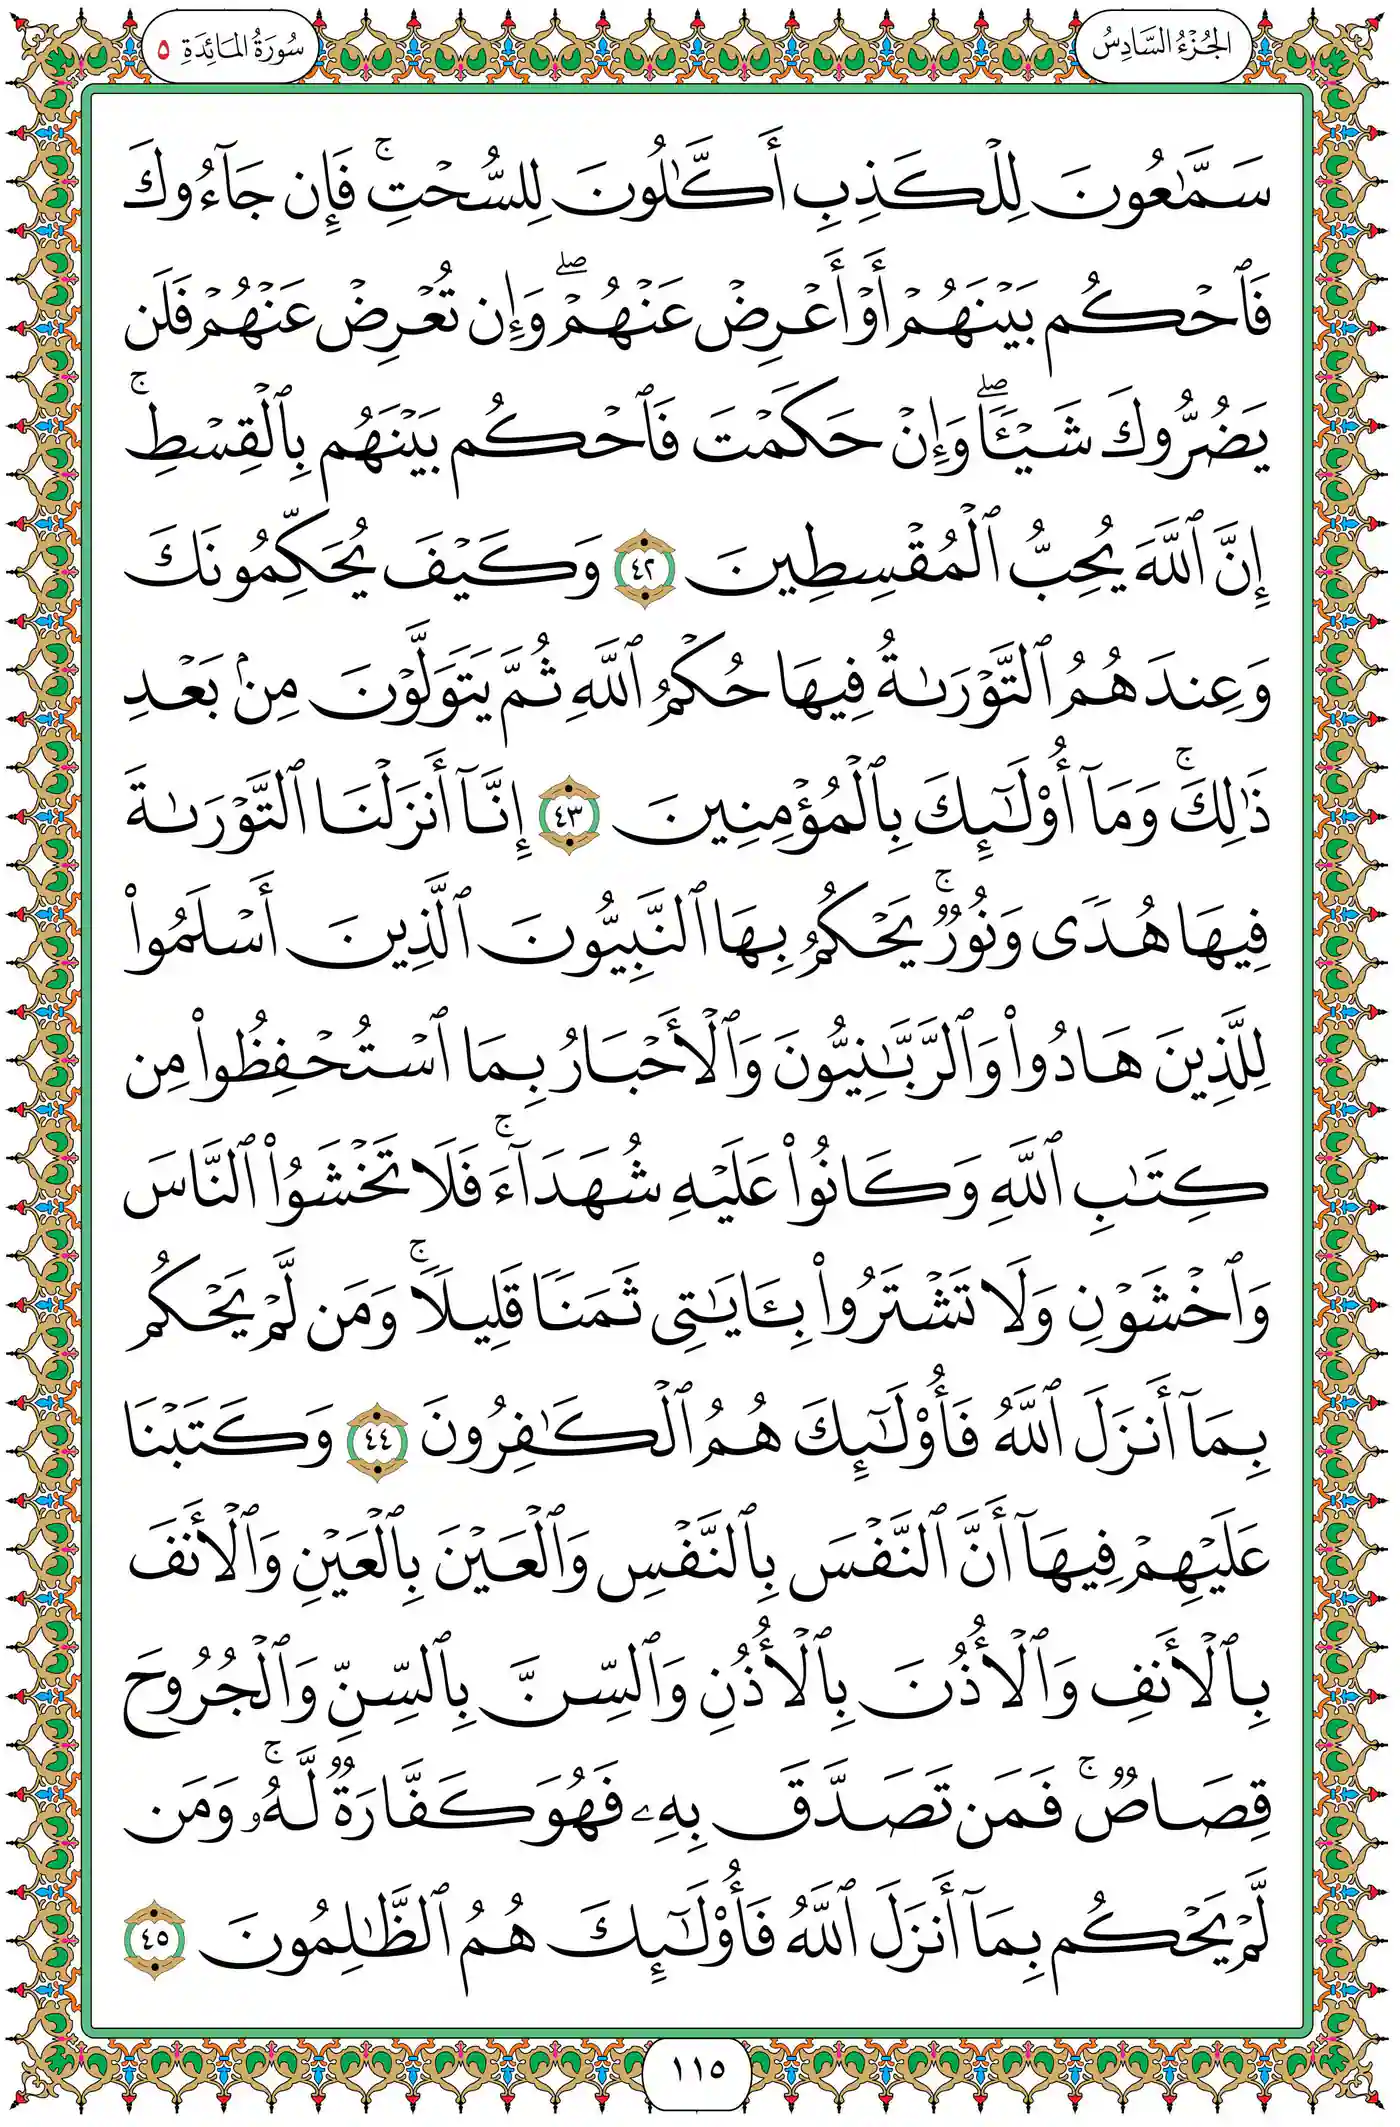 الجُزْءُ السَّادِسُ
سُورَةُ المَائِدَةِ ٥
سَمَّٰعُونَ لِلْكَذِبِ أَكَّٰلُونَ لِلسُّحْتِۚ فَإِن جَآءُوكَ
فَٱحْكُم بَيْنَهُمْ أَوْ أَعْرِضْ عَنْهُمْۖ وَإِن تُعْرِضْ عَنْهُمْ فَلَن
يَضُرُّوكَ شَيْـًٔاۖ وَإِنْ حَكَمْتَ فَٱحْكُم بَيْنَهُم بِٱلْقِسْطِۚ
إِنَّ ٱللَّهَ يُحِبُّ ٱلْمُقْسِطِينَ ٤٢ وَكَيْفَ يُحَكِّمُونَكَ
وَعِندَهُمُ ٱلتَّوْرَىٰةُ فِيهَا حُكْمُ ٱللَّهِ ثُمَّ يَتَوَلَّوْنَ مِنۢ بَعْدِ
ذَٰلِكَۚ وَمَآ أُو۟لَـٰٓئِكَ بِٱلْمُؤْمِنِينَ ٤٣ إِنَّآ أَنزَلْنَا ٱلتَّوْرَىٰةَ
فِيهَا هُدًى وَنُورٌۚ يَحْكُمُ بِهَا ٱلنَّبِيُّونَ ٱلَّذِينَ أَسْلَمُوا۟
لِلَّذِينَ هَادُوا۟ وَٱلرَّبَّـٰنِيُّونَ وَٱلْأَحْبَارُ بِمَا ٱسْتُحْفِظُوا۟ مِن
كِتَـٰبِ ٱللَّهِ وَكَانُوا۟ عَلَيْهِ شُهَدَآءَۚ فَلَا تَخْشَوُا۟ ٱلنَّاسَ
وَٱخْشَوْنِ وَلَا تَشْتَرُوا۟ بِـَٔايَـٰتِى ثَمَنًا قَلِيلًاۚ وَمَن لَّمْ يَحْكُم
بِمَآ أَنزَلَ ٱللَّهُ فَأُو۟لَـٰٓئِكَ هُمُ ٱلْكَـٰفِرُونَ ٤٤ وَكَتَبْنَا
عَلَيْهِمْ فِيهَآ أَنَّ ٱلنَّفْسَ بِٱلنَّفْسِ وَٱلْعَيْنَ بِٱلْعَيْنِ وَٱلْأَنفَ
بِٱلْأَنفِ وَٱلْأُذُنَ بِٱلْأُذُنِ وَٱلسِّنَّ بِٱلسِّنِّ وَٱلْجُرُوحَ
قِصَاصٌۚ فَمَن تَصَدَّقَ بِهِۦ فَهُوَ كَفَّارَةٌ لَّهُۥۚ وَمَن
لَّمْ يَحْكُم بِمَآ أَنزَلَ ٱللَّهُ فَأُو۟لَـٰٓئِكَ هُمُ ٱلظَّـٰلِمُونَ ٤٥
١١٥